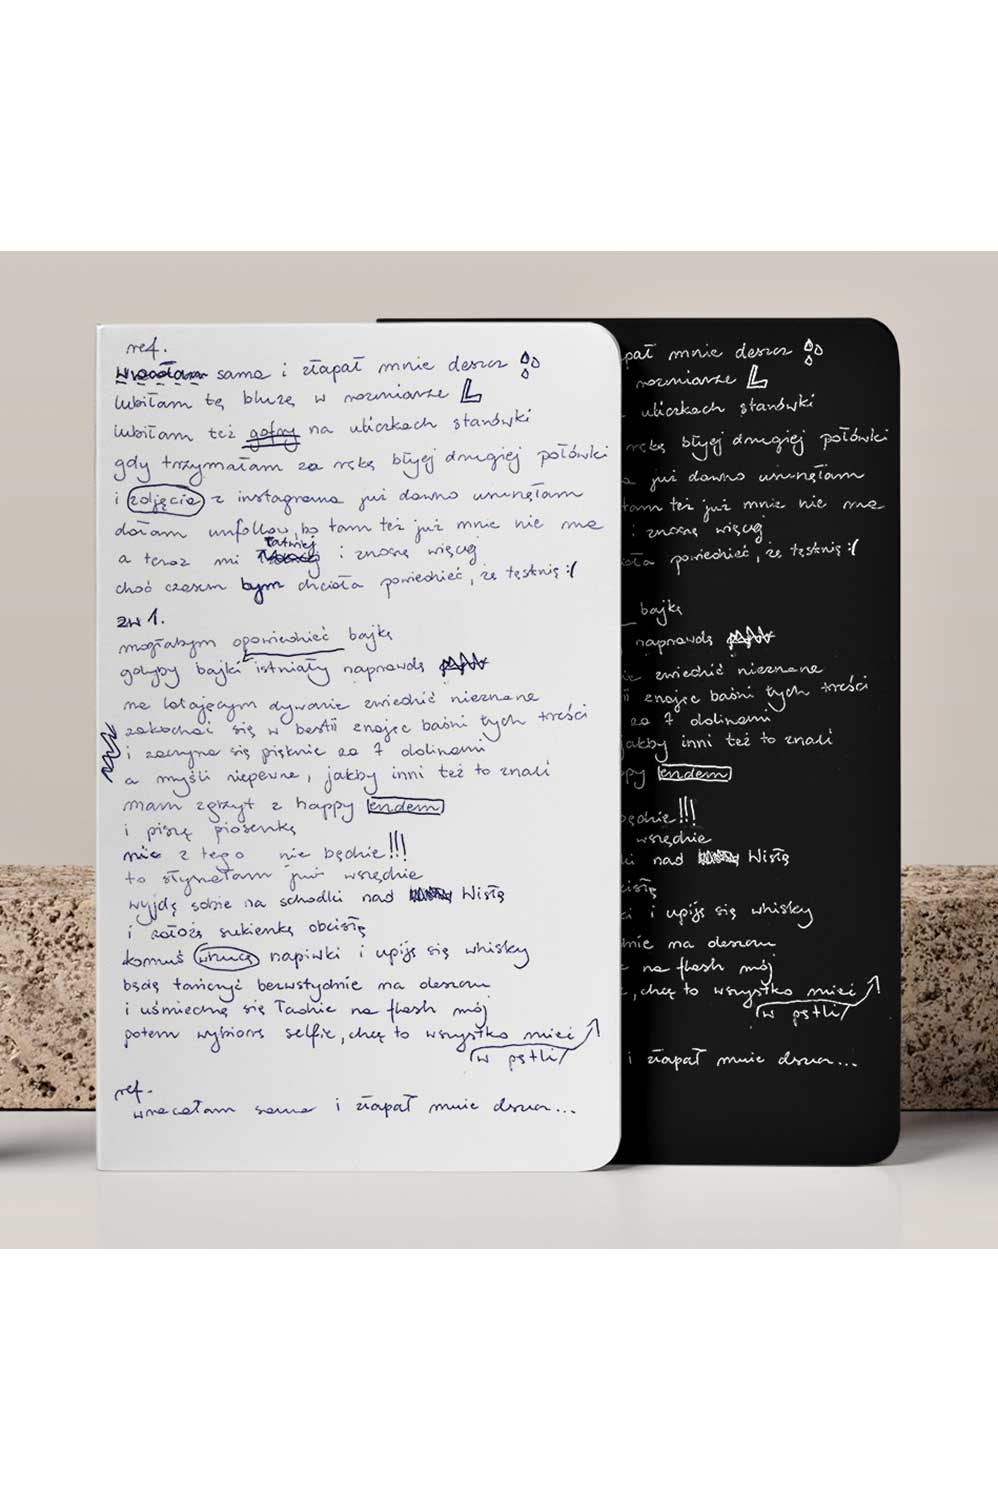 ref.
wracałam sama i złapał mnie deszcz
lubiłam tę bluzę w rozmiarze L
lubiłam też gofry na uliczkach starówki
gdy trzymałam za rękę błyej drugiej połówki
i zdjęcia z instagrama już dawno usunęłam
dałam unfollow, bo tam też już mnie nie ma
łatwiej
a teraz mi i znoszę więcej
choć czasem bym chciała powiedzieć, że tęsknię :(
zw 1.
mogłabym opowiedzieć bajkę
gdyby bajki istniały naprawdę
na latającym dywanie zwiedzić nieznane
zakochać się w bestii znając baśni tych treści
i zaczyna się pięknie za 7 dolinami
a myśli niepewne, jakby inni też to znali
mam zgrzyt z happy endem
i piszę piosenkę
nic z tego nie będzie!!!
to słynęłam już wszędzie
wyjdę sobie na schodki nad Wisłę
i założę sukienkę obcisłą
komuś wrzucę napiwki i upiję się whisky
będę tańczyć bezwstydnie na deszczu
i uśmiechnę się ładnie na flesh mój
potem wybiorę selfie, chcę to wszystko mieć
w pętli
ref.
wracałam sama i złapał mnie deszcz...
pał mnie deszcz
rozmiarze L
uliczkach starówki
rękę błyej drugiej połówki
a już dawno usunęłam
tam też już mnie nie ma
i znoszę więcej
iała powiedzieć, że tęsknię :(
bajkę
naprawdę
ie zwiedzić nieznane
tii znając baśni tych treści
za 7 dolinami
jakby inni też to znali
ppy endem
będzie!!!
wszędzie
ki nad Wisłę
cisłą
ki i upiję się whisky
dnie na deszczu
e na flesh mój
e, chcę to wszystko mieć
w pętli
i złapał mnie deszcz...